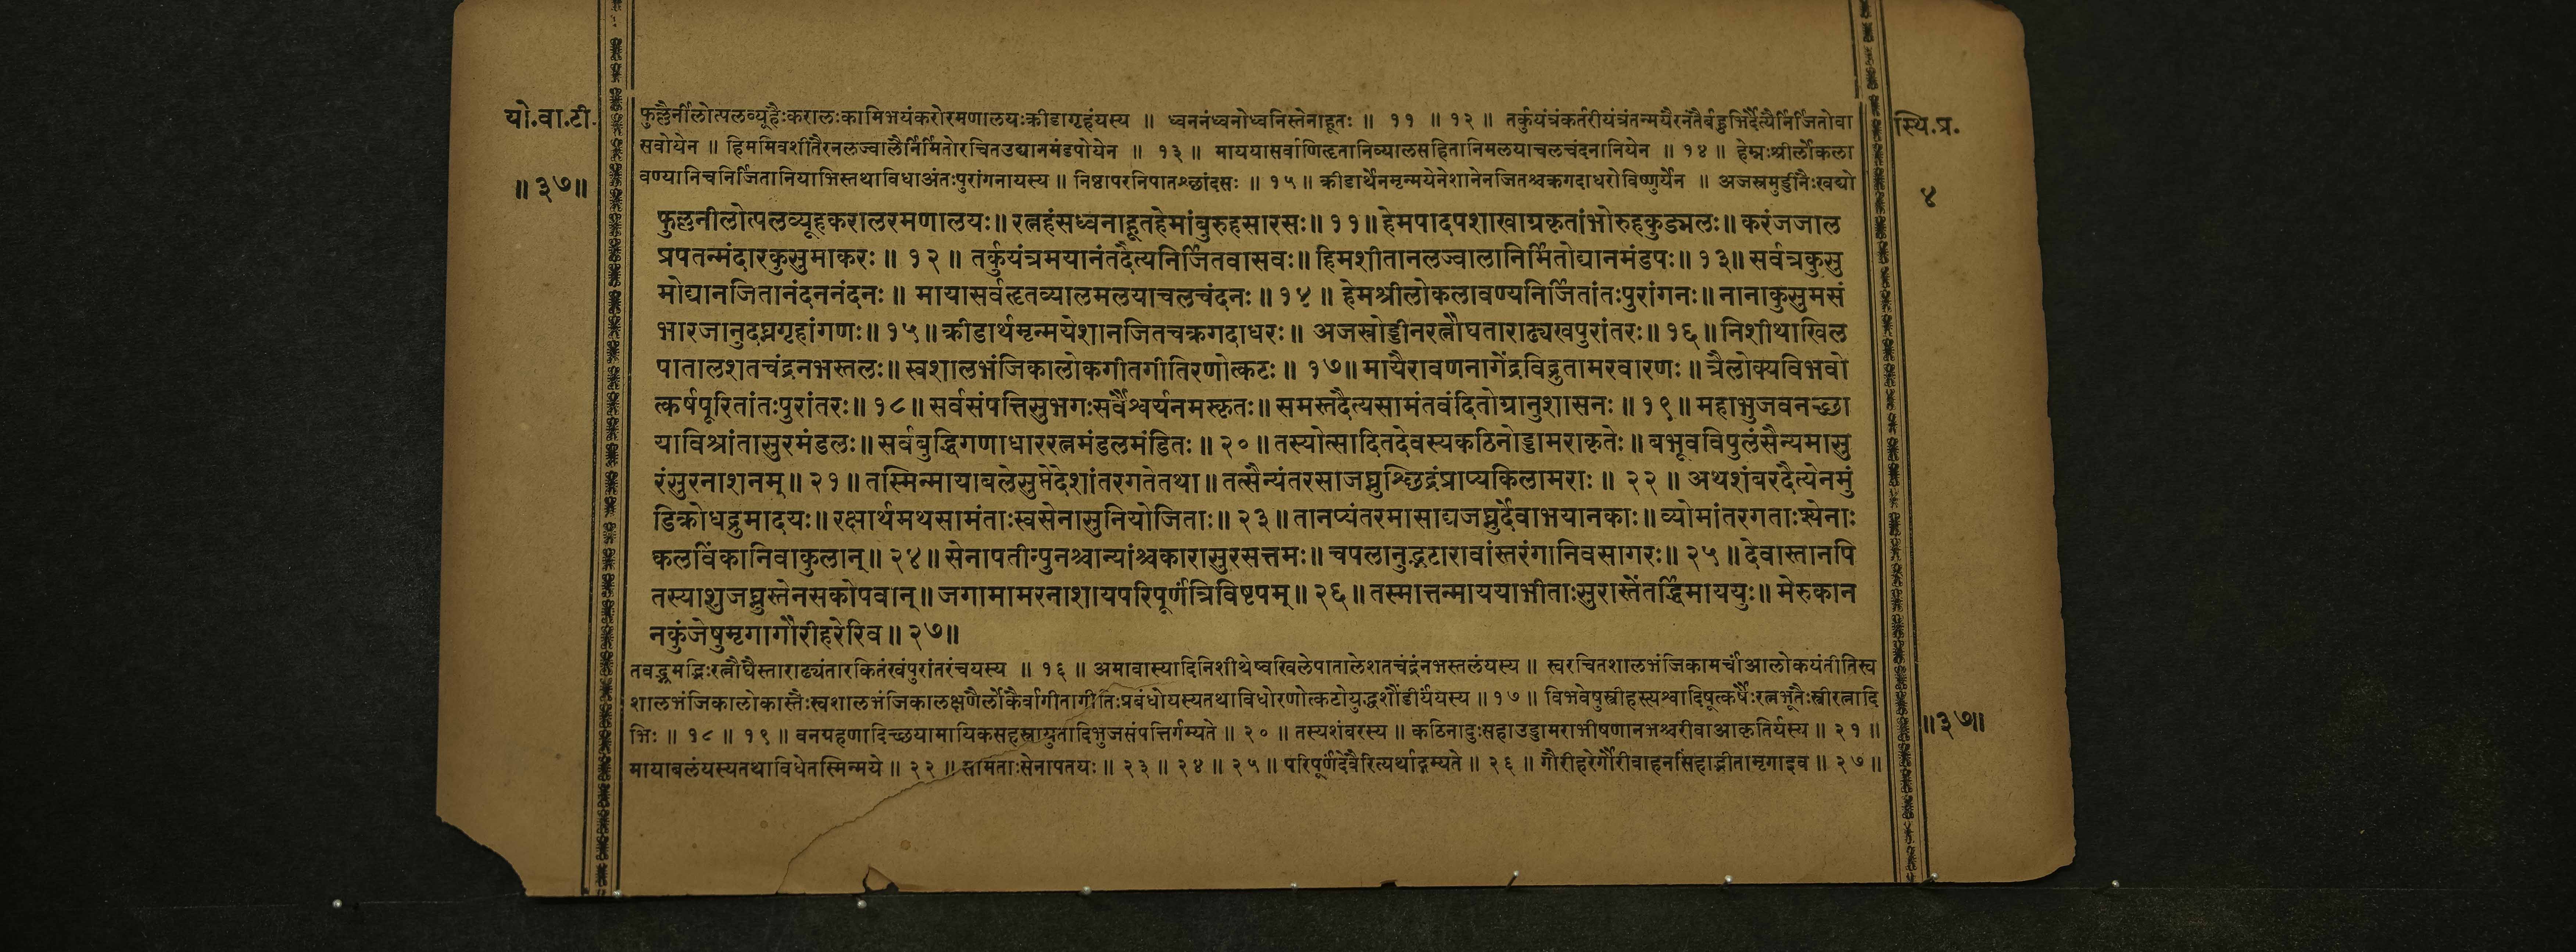 यो.वा.टी.
॥३७॥
फुल्लैर्नीलोत्पलव्यूहैःकरालःकामिभयंकरोरमणालयःक्रीडागृहंयस्य ॥ ध्वननंध्वनोध्वनिस्तेनाहूतः ॥ ११ ॥ १२ ॥ तर्कुयंत्रंकर्तरीयंत्रंतन्मयैरनंतैर्बहुभिर्दैत्यैर्निर्जितोवा
सवोयेन ॥ हिममिवशीतैरनलज्वालैर्निर्मितोरचितउद्यानमंडपोयेन ॥ १३ ॥ माययासर्वाणिहृतानिव्यालसहितानिमलयाचलचंदनानियेन ॥ १४ ॥ हेम्नःश्रीर्लोकला
वण्यानिचनिर्जितानियाभिस्तथाविधाअंतःपुरांगनायस्य ॥ निष्ठापरनिपातश्छांदसः ॥ १५ ॥ क्रीडार्थेनमृन्मयेनेशानेनजितश्चक्रगदाधरोविष्णुर्येन ॥ अजस्रमुड्डीनैःखद्यो
फुल्लनीलोत्पलव्यूहकरालरमणालयः॥ रत्नहंसध्वनाहूतहेमांबुरुहसारसः॥ ११॥ हेमपादपशाखाग्रकृतांभोरुहकुड्मलः॥ करंजजाल
प्रपतन्मंदारकुसुमाकरः॥ १२॥ तर्कुयंत्रमयानंतदैत्यनिर्जितवासवः॥ हिमशीतानलज्वालानिर्मितोद्यानमंडपः॥ १३॥ सर्वत्रकुसु
मोद्यानजितानंदननंदनः॥ मायासर्वहृतव्यालमलयाचलचंदनः॥ १४॥ हेमश्रीलोकलावण्यनिर्जितांतःपुरांगनः॥ नानाकुसुमसं
भारजानुदघ्नगृहांगणः॥ १५॥ क्रीडार्थमृन्मयेशानजितचक्रगदाधरः॥ अजस्रोड्डीनरत्नौघताराढ्यखपुरांतरः॥ १६॥ निशीथाखिल
पातालशतचंद्रनभस्तलः॥ स्वशालभंजिकालोकगीतगीतिरणोत्कटः॥ १७॥ मायैरावणनागेंद्रविद्रुतामरवारणः॥ त्रैलोक्यविभवो
त्कर्षपूरितांतःपुरांतरः॥ १८॥ सर्वसंपत्तिसुभगःसर्वैश्वर्यनमस्कृतः॥ समस्तदैत्यसामंतवंदितोग्रानुशासनः॥ १९॥ महाभुजवनच्छा
याविश्रांतासुरमंडलः॥ सर्वबुद्धिगणाधाररत्नमंडलमंडितः॥ २०॥ तस्योत्सादितदेवस्यकठिनोड्डामराकृतेः॥ बभूवविपुलंसैन्यमासु
रंसुरनाशनम्॥ २१॥ तस्मिन्मायाबलेसुप्तेदेशांतरगतेतथा॥ तत्सैन्यंतरसाजघ्नुश्छिद्रंप्राप्यकिलामराः॥ २२॥ अथशंबरदैत्येनमुं
डिक्रोधद्रुमादयः॥ रक्षार्थमथसामंताःस्वसेनासुनियोजिताः॥ २३॥ तानप्यंतरमासाद्यजघ्नुर्देवाभयानकाः॥ व्योमांतरगताःश्येनाः
कलविंकानिवाकुलान्॥ २४॥ सेनापतीन्पुनश्चान्यांश्चकारासुरसत्तमः॥ चपलानुद्भटारावांस्तरंगानिवसागरः॥ २५॥ देवास्तानपि
तस्याशुजघ्नुस्तेनसकोपवान्॥ जगामामरनाशायपरिपूर्णंत्रिविष्टपम्॥ २६॥ तस्मात्तन्माययाभीताःसुरास्तेंतर्द्धिमाययुः॥ मेरुकान
नकुंजेषुमृगागौरीहरेरिव॥ २७॥
तवद्भ्रमद्भिःरत्नौघैस्ताराढ्यंतारकितंखंपुरांतरंचयस्य ॥ १६ ॥ अमावास्यादिनिशीथेष्वखिलेपातालेशतचंद्रंनभस्तलंयस्य ॥ स्वरचितशालभंजिकामर्चांआलोकयंतीतिस्व
शालभंजिकालोकास्तैःस्वशालभंजिकालक्षणैर्लोकैर्वागीतागीतिःप्रबंधोयस्यतथाविधोरणोत्कटोयुद्धशौंडीर्ययस्य ॥ १७ ॥ विभवेषुस्त्रीहस्त्यश्वादिषूत्कर्षैःरत्नभूतैःस्त्रीरत्नादि
भिः ॥ १८ ॥ १९ ॥ वनग्रहणादिच्छयामायिकसहस्रायुतादिभुजसंपत्तिर्गम्यते ॥ २० ॥ तस्यशंबरस्य ॥ कठिनादुःसहाउड्डामराभीषणानभश्चरीवाआकृतिर्यस्य ॥ २१ ॥
मायाबलंयस्यतथाविधेतस्मिन्मये ॥ २२ ॥ सामंताःसेनापतयः ॥ २३ ॥ २४ ॥ २५ ॥ परिपूर्णंदेवैरित्यर्थाद्गम्यते ॥ २६ ॥ गौरीहरेर्गौरीवाहनसिंहाद्भीतामृगाइव ॥ २७ ॥
स्थि.प्र.
४
॥३७॥